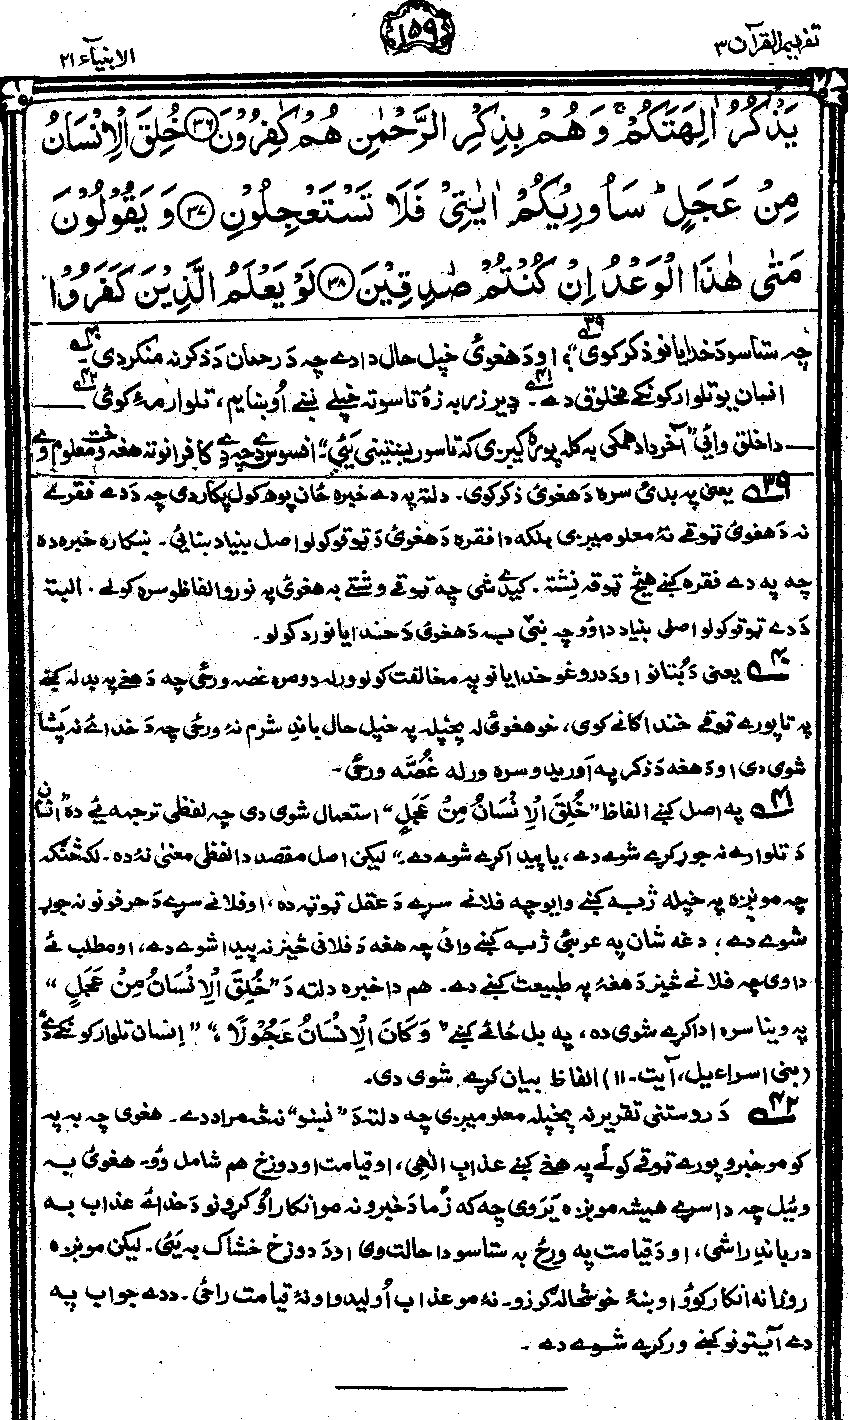 تفہیم القرآن ۳
۱۵۹
الانبیآء ۲۱
يَذْكُرُ اٰلِهَتَكُمْ ۚ وَ هُمْ بِذِكْرِ الرَّحْمٰنِ هُمْ كٰفِرُوْنَ ۝۳۶ خُلِقَ الْاِنْسَانُ
مِنْ عَجَلٍ ؕ سَاُورِيْكُمْ اٰيٰتِيْ فَلَا تَسْتَعْجِلُوْنِ ۝۳۷ وَ يَقُوْلُوْنَ
مَتٰى هٰذَا الْوَعْدُ اِنْ كُنْتُمْ صٰدِقِيْنَ ۝۳۸ لَوْ يَعْلَمُ الَّذِيْنَ كَفَرُوْا
چہ ستاسو دَ خدایانو ذکر کوی"؟ ۳۹ او دَ هغوئ خپل حال دا دے چہ دَ رحمان دَ ذکر نہ منکر دی۔ ۴۰
انسان یو تلوار کونکے مخلوق دے۔ ۴۱ ډیر زر بہ زہ تاسو تہ خپلے نښے اوښایم، تلوار مۂ کوئ ۴۲
دا خلق وائی "آخر دا دهمکی بہ کلہ پورہ کیږی کہ تاسو ریښتینی یئ"۔ افسوس دے چہ دے کافرانو تہ هغہ وخت معلوم وے
۳۹ یعنی پہ بدئ سرہ دَ هغوئ ذکر کوی۔ دلتہ پہ دے خبرہ ځان پوهہ کول پکار دی چہ دَ دے فقرے
نہ دَ هغوئ ټوقے نۂ معلومیږی بلکہ دا فقرہ دَ هغوئ دَ ټوقو کولو اصل بنیاد ښائی۔ ښکارہ خبرہ دہ
چہ پہ دے فقرہ کښے هیڅ ټوقہ نشتہ۔ کیدے شی چہ ټوقے وشتے بہ هغوئ پہ نورو الفاظو سرہ کولے۔ البتہ
دَ دے ټوقو کولو اصلی بنیاد دا وو چہ نبی بہ دَ هغوئ دَ خدایانو رد کولو۔
۴۰ یعنی دَ بُتانو او دَ دروغو خدایانو پہ مخالفت کولو ورلہ دومرہ غصہ ورځی چہ دَ هغے پہ بدلہ کښے
پہ تا پورے ټوقے خندا کانے کوی، خو هغوئ لہ پخپلہ پہ خپل حال باندے شرم نۂ ورځی چہ دَ خدائے نہ
شوی دی او دَ هغہ دَ ذکر پہ اوریدو سرہ ورلہ غُصّہ ورځی۔
۴۱ پہ اصل کښے الفاظ "خُلِقَ الْاِنْسَانُ مِنْ عَجَلٍ" استعمال شوی دی چہ لفظی ترجمہ ئے دہ "انسان
دَ تلوارے نہ جوړ کرے شوے دے، یا پیدا کرے شوے دے"۔ لیکن اصل مقصد دا لفظی معنیٰ نۂ دہ۔ لکہ څنګہ
چہ مونږہ پہ خپلہ ژبہ کښے وایو چہ فلانے سړے دَ عقل ټوټہ دہ، او فلانے سړے دَ حرفونو نہ جوړ
شوے دے؛ دغہ شان پہ عربئ ژبہ کښے وائی چہ هغہ دَ فلانی څیز نہ پیدا شوے دے، او مطلب ئے
دا وی چہ فلانے څیز دَ هغۂ پہ طبیعت کښے دے۔ هم دا خبرہ دلتہ دَ "خُلِقَ الْاِنْسَانُ مِنْ عَجَلٍ"
پہ وینا سرہ ادا کرے شوی دہ، پہ بل ځائے کښے "وَ كَانَ الْاِنْسَانُ عَجُوْلًا"، "انسان تلوار کونکے دے"
(بنی اسراءیل، آیت۔ ۱۱) الفاظ بیان کرے شوی دی۔
۴۲ دَ روستنی تقریر نہ پخپلہ معلومیږی چہ دلتہ دَ "نښو" نہ څہ مراد دے۔ هغوی چہ بہ پہ
کومو خبرو پورے ټوقے کولے پہ هغے کښے عذاب الٰهی، او قیامت او دوزخ هم شامل وو۔ هغوئ بہ
وئیل چہ دا سړے همیشہ مونږہ یَرَوی چہ کہ زما دَ خبرو نہ مو انکار اوکړو نو دَ خدائے عذاب بہ
درباندے راشی، او دَ قیامت پہ ورځ بہ ستاسو دا حالت وی او دَ دوزخ خشاک بہ یئ۔ لیکن مونږہ
روزانہ انکار کوؤ او ښۂ خوشحالہ ګرزو۔ نۂ مو عذاب اولیدو او نۂ قیامت راځی۔ ددے جواب پہ
دے آیتونو کښے ورکړے شوے دے۔